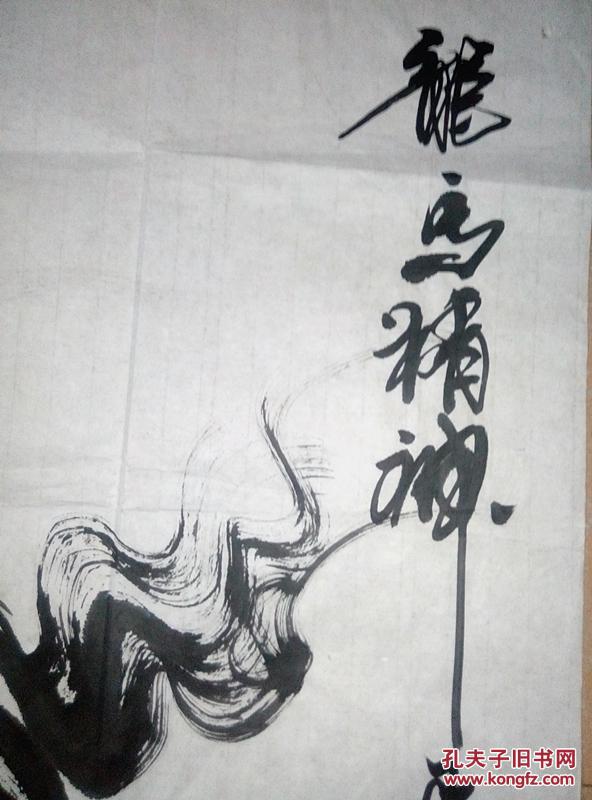 龍马精神
孔夫子旧书网
www.kongfz.com